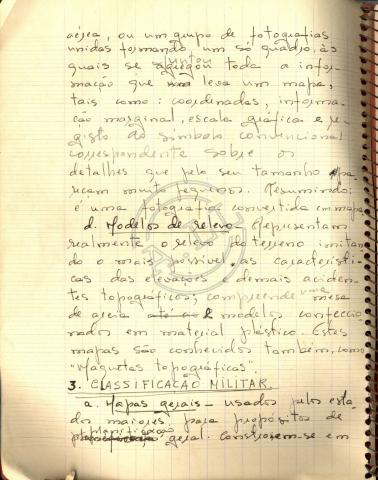 aérea, ou um grupo de fotografias
unidas formando um só quadro, às
juntou
quais se agregou toda a infor-
mação que leva um mapa,
tais como: coordenadas, informa-
ção marginal, escala gráfica e re-
gisto do símbolo convencional
correspondente sobre os
detalhes que pelo seu tamanho apa-
reçam muito pequenos. Resumindo:
é uma fotografia convertida em mapa.
d. Modelos de relevo - Representam
realmente o relevo do terreno imitan
do o mais possível as caracterist-
cas das elevações e demais aciden-
tes topográficos; compreende mesa
de areia até a modelos confeccio
nados em material plástico. Estes
mapas são conhecidos também, como
"Maquetas topográficas".
3. CLASSIFICAÇÃO MILITAR.
a. Mapas gerais - usados pelos esta
dos maiores para propósitos de
planificação
geral. Constroem-se em